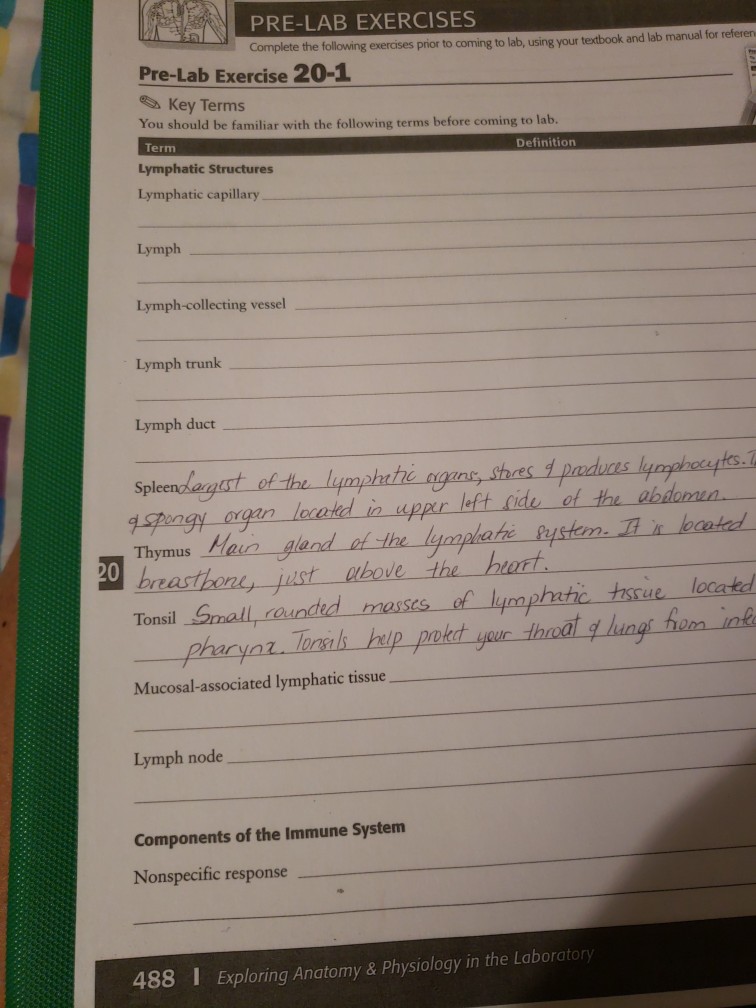 PRE-LAB EXERCISES
Complete the following exercises prior to coming to lab, using your textbook and lab manual for
Pre-Lab Exercise 20-1
Key Terms
You should be familiar with the following terms before coming to lab.
Term Definition
Lymphatic Structures
Lymphatic capillary
Lymph
Lymph-collecting vessel
Lymph trunk
Lymph duct
Spleen Largest of the lymphatic organs, stores & produces lymphocytes.
& spongy organ located in upper left side of the abdomen.
Thymus Main gland of the lymphatic system. It is located
20 breastbone, just above the heart.
Tonsil Small, rounded masses of lymphatic tissue located
pharynx. Tonsils help protect your throat & lungs from
Mucosal-associated lymphatic tissue
Lymph node
Components of the Immune System
Nonspecific response
488 | Exploring Anatomy & Physiology in the Laboratory